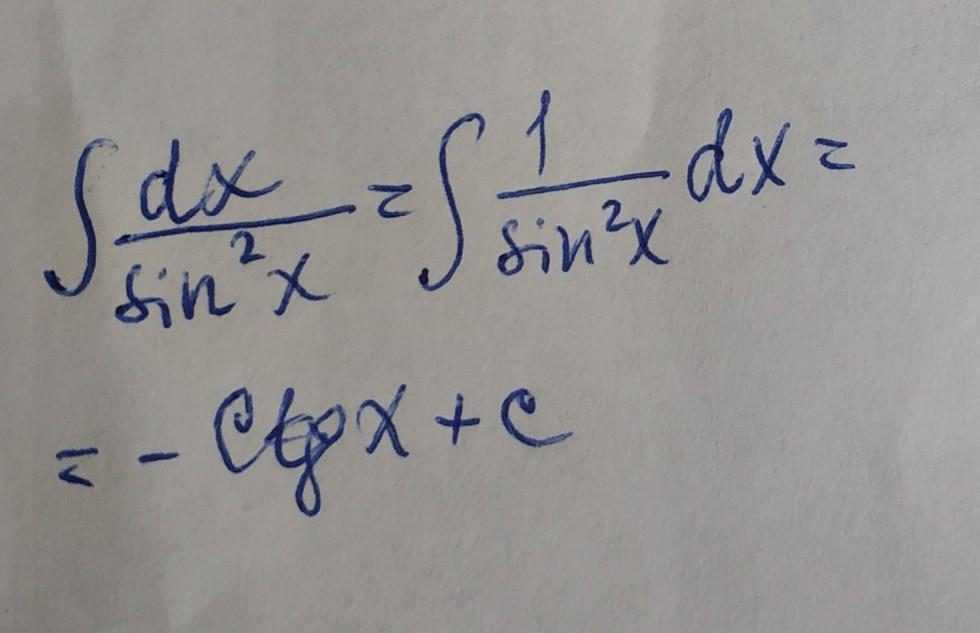 ∫ dx/sin²x = ∫ 1/sin²x dx =
= - Ctg x + C